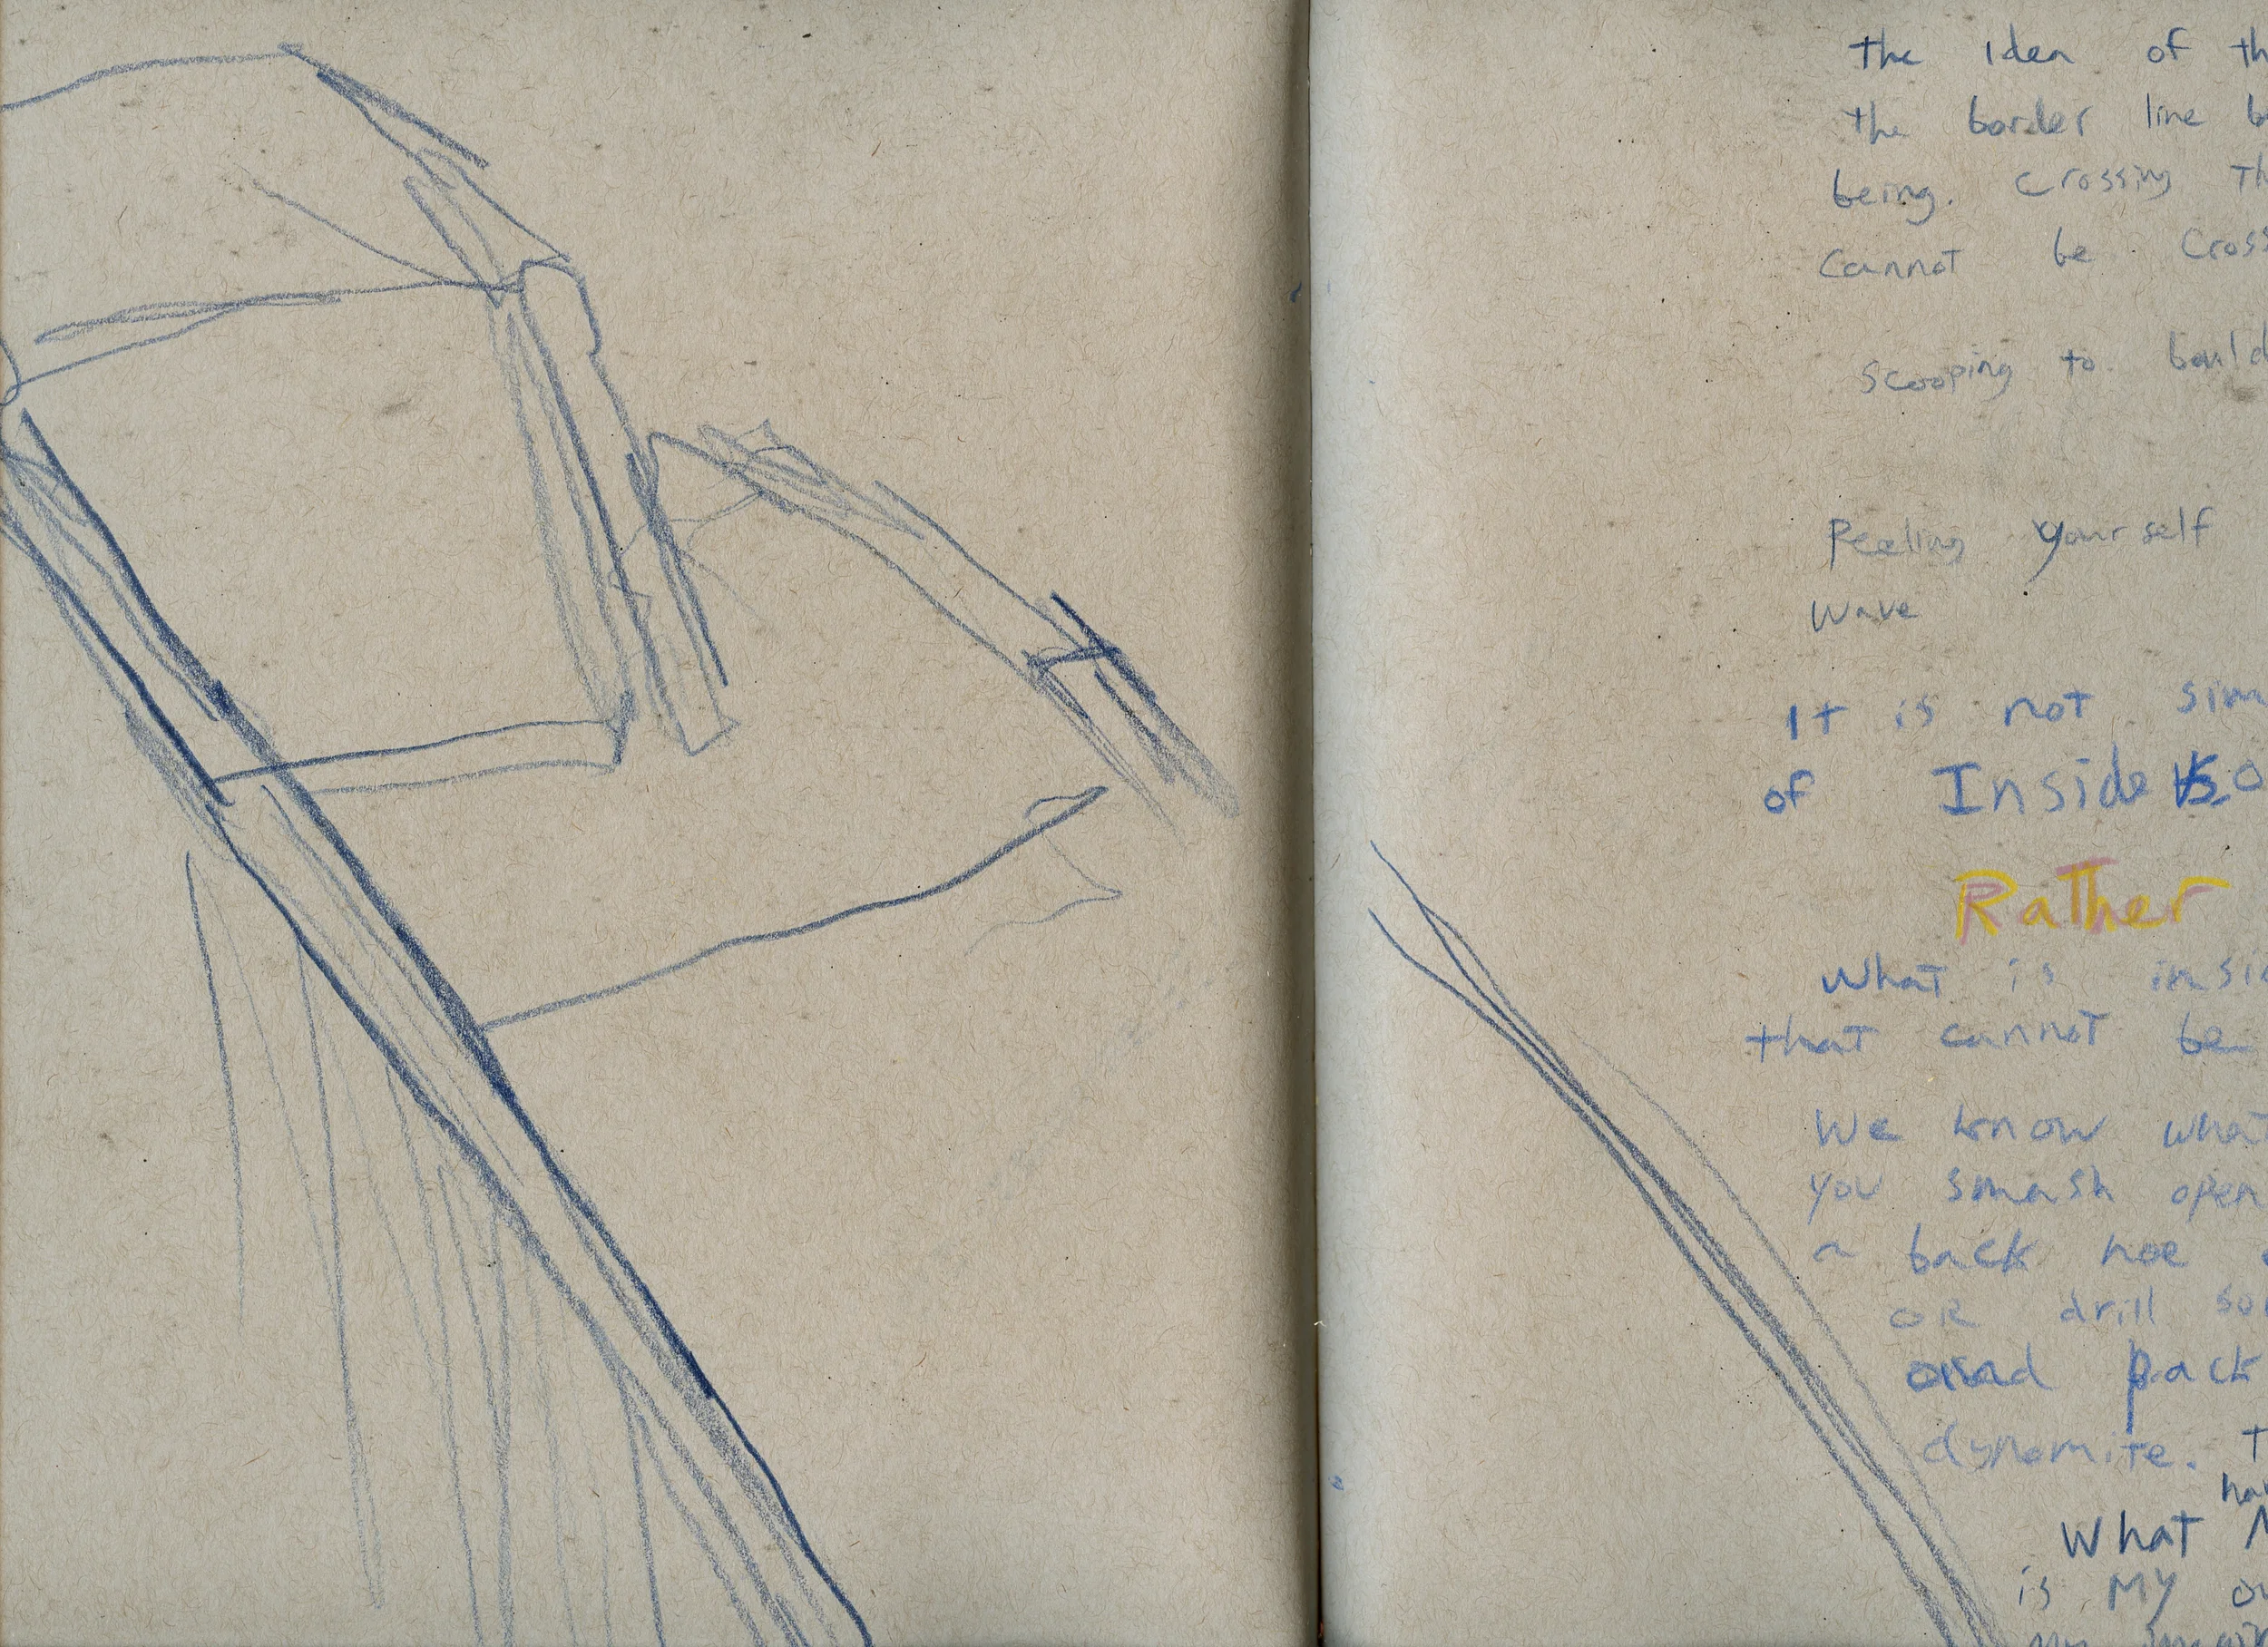 the idea of th
the border line b
being. crossing Th
Cannot be Cross
Scooping to build
Peeling yourself
wave
It is not sim
of Inside VS. O
Rather
What is insi
that cannot be
We know what
you smash open
a back hoe
OR drill so
and pack
dynomite. T
ha
What
is My ou